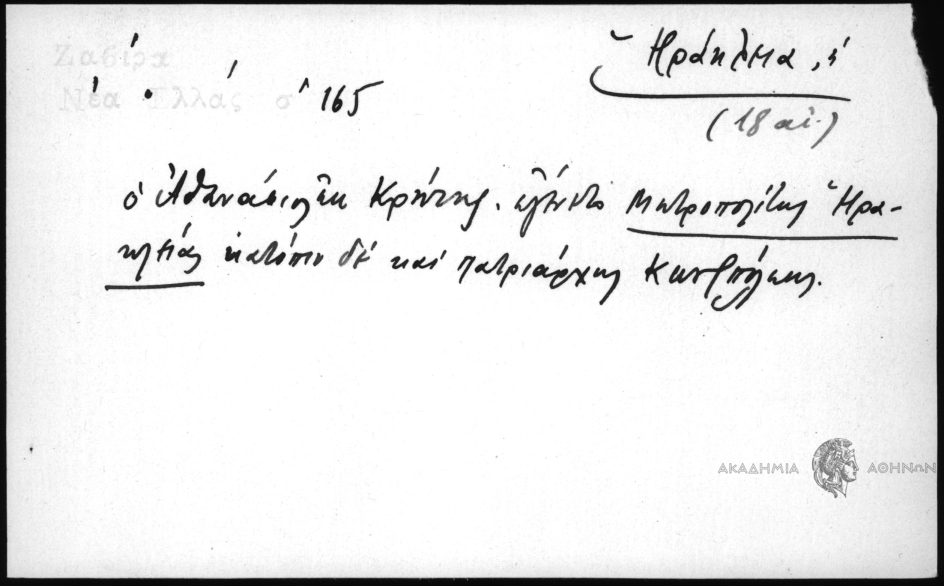 Ζαβίρα
Νέα Ἑλλάς σ 165
Ἡράκλεια, ἡ
(18 αἰ.)
ὁ Ἀθανάσιος ἐκ Κρήτης. ἐγένετο Μητροπολίτης Ἡρα-
κλείας κατόπιν δέ καί πατριάρχης Κωνσ]πόλεως.
ΑΚΑΔΗΜΙΑ ΑΘΗΝΩΝ